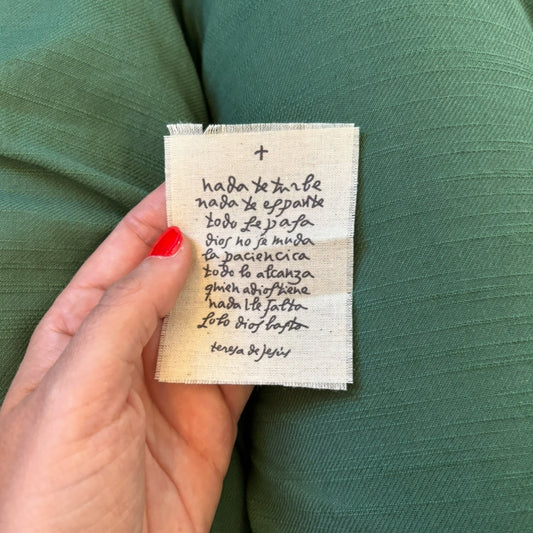 +
nada te turbe
nada te eſpante
todo ſe paſa
dioſ no ſe muda
la paciencica
todo lo alcanza
quien a dioſ tiene
nada lle falta
ſolo dioſ baſta
teresa de jesús